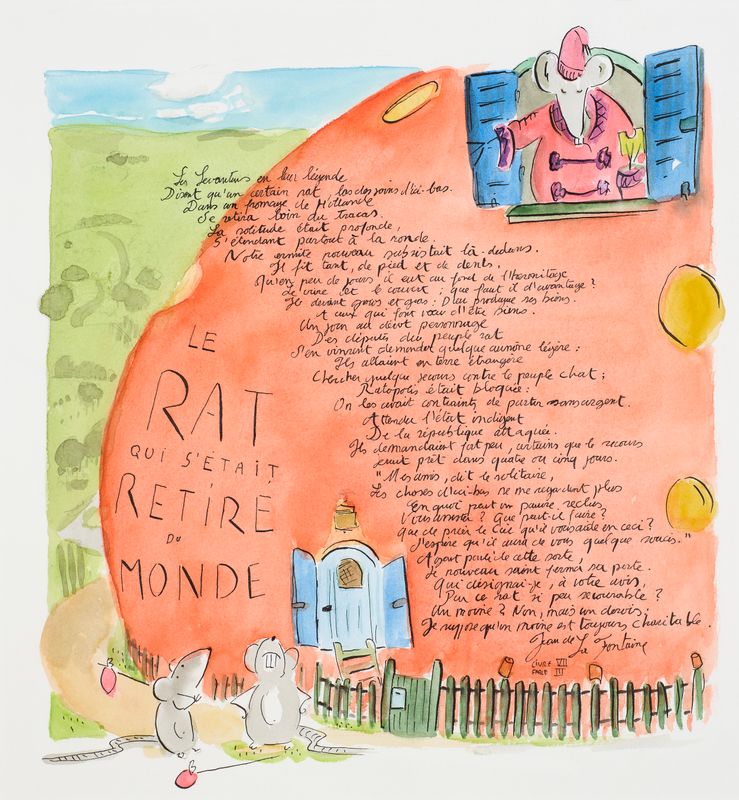 LE
RAT
QUI S'ÉTAIT
RETIRÉ
DU
MONDE
Les Levantins en leur légende
Disent qu'un certain rat, las des soins d'ici-bas.
Dans un fromage de Hollande
Se retira loin du tracas.
La solitude était profonde,
S'étendant partout à la ronde.
Notre ermite nouveau subsistait là-dedans.
Il fit tant, de pied et de dents,
Qu'en peu de jours il eut au fond de l'Hermitage
Le vivre et le couvert ; que faut il d'avantage ?
Il devint gros et gras : Dieu prodigue ses biens.
A ceux qui font voeu d'être siens.
Un jour au dévot personnage
Des députés du peuple rat
S'en vinrent demander quelque aumône légère :
Ils allaient en terre étrangère
Chercher quelque secours contre le peuple chat ;
Ratopolis était bloquée :
On les avait contraints de partir sans argent.
Attendu l'état indigent
De la république attaquée.
Ils demandaient fort peu, certains que le secours
serait prêt dans quatre ou cinq jours.
"Mes amis, dit le solitaire,
Les choses d'ici-bas ne me regardent plus
En quoi peut un pauvre reclus
Vous assister ? Que peut-il faire ?
Que de prier le Ciel qu'il vous aide en ceci ?
J'espère qu'il aura de vous quelque soucis."
Ayant parlé de cette sorte,
Le nouveau saint ferma sa porte.
Qui désignai-je, à votre avis,
Par ce rat si peu secourable ?
Un moine ? Non, mais un dervis ;
Je suppose qu'un moine est toujours charitable.
Jean de La Fontaine
LIVRE VII
FABLE III